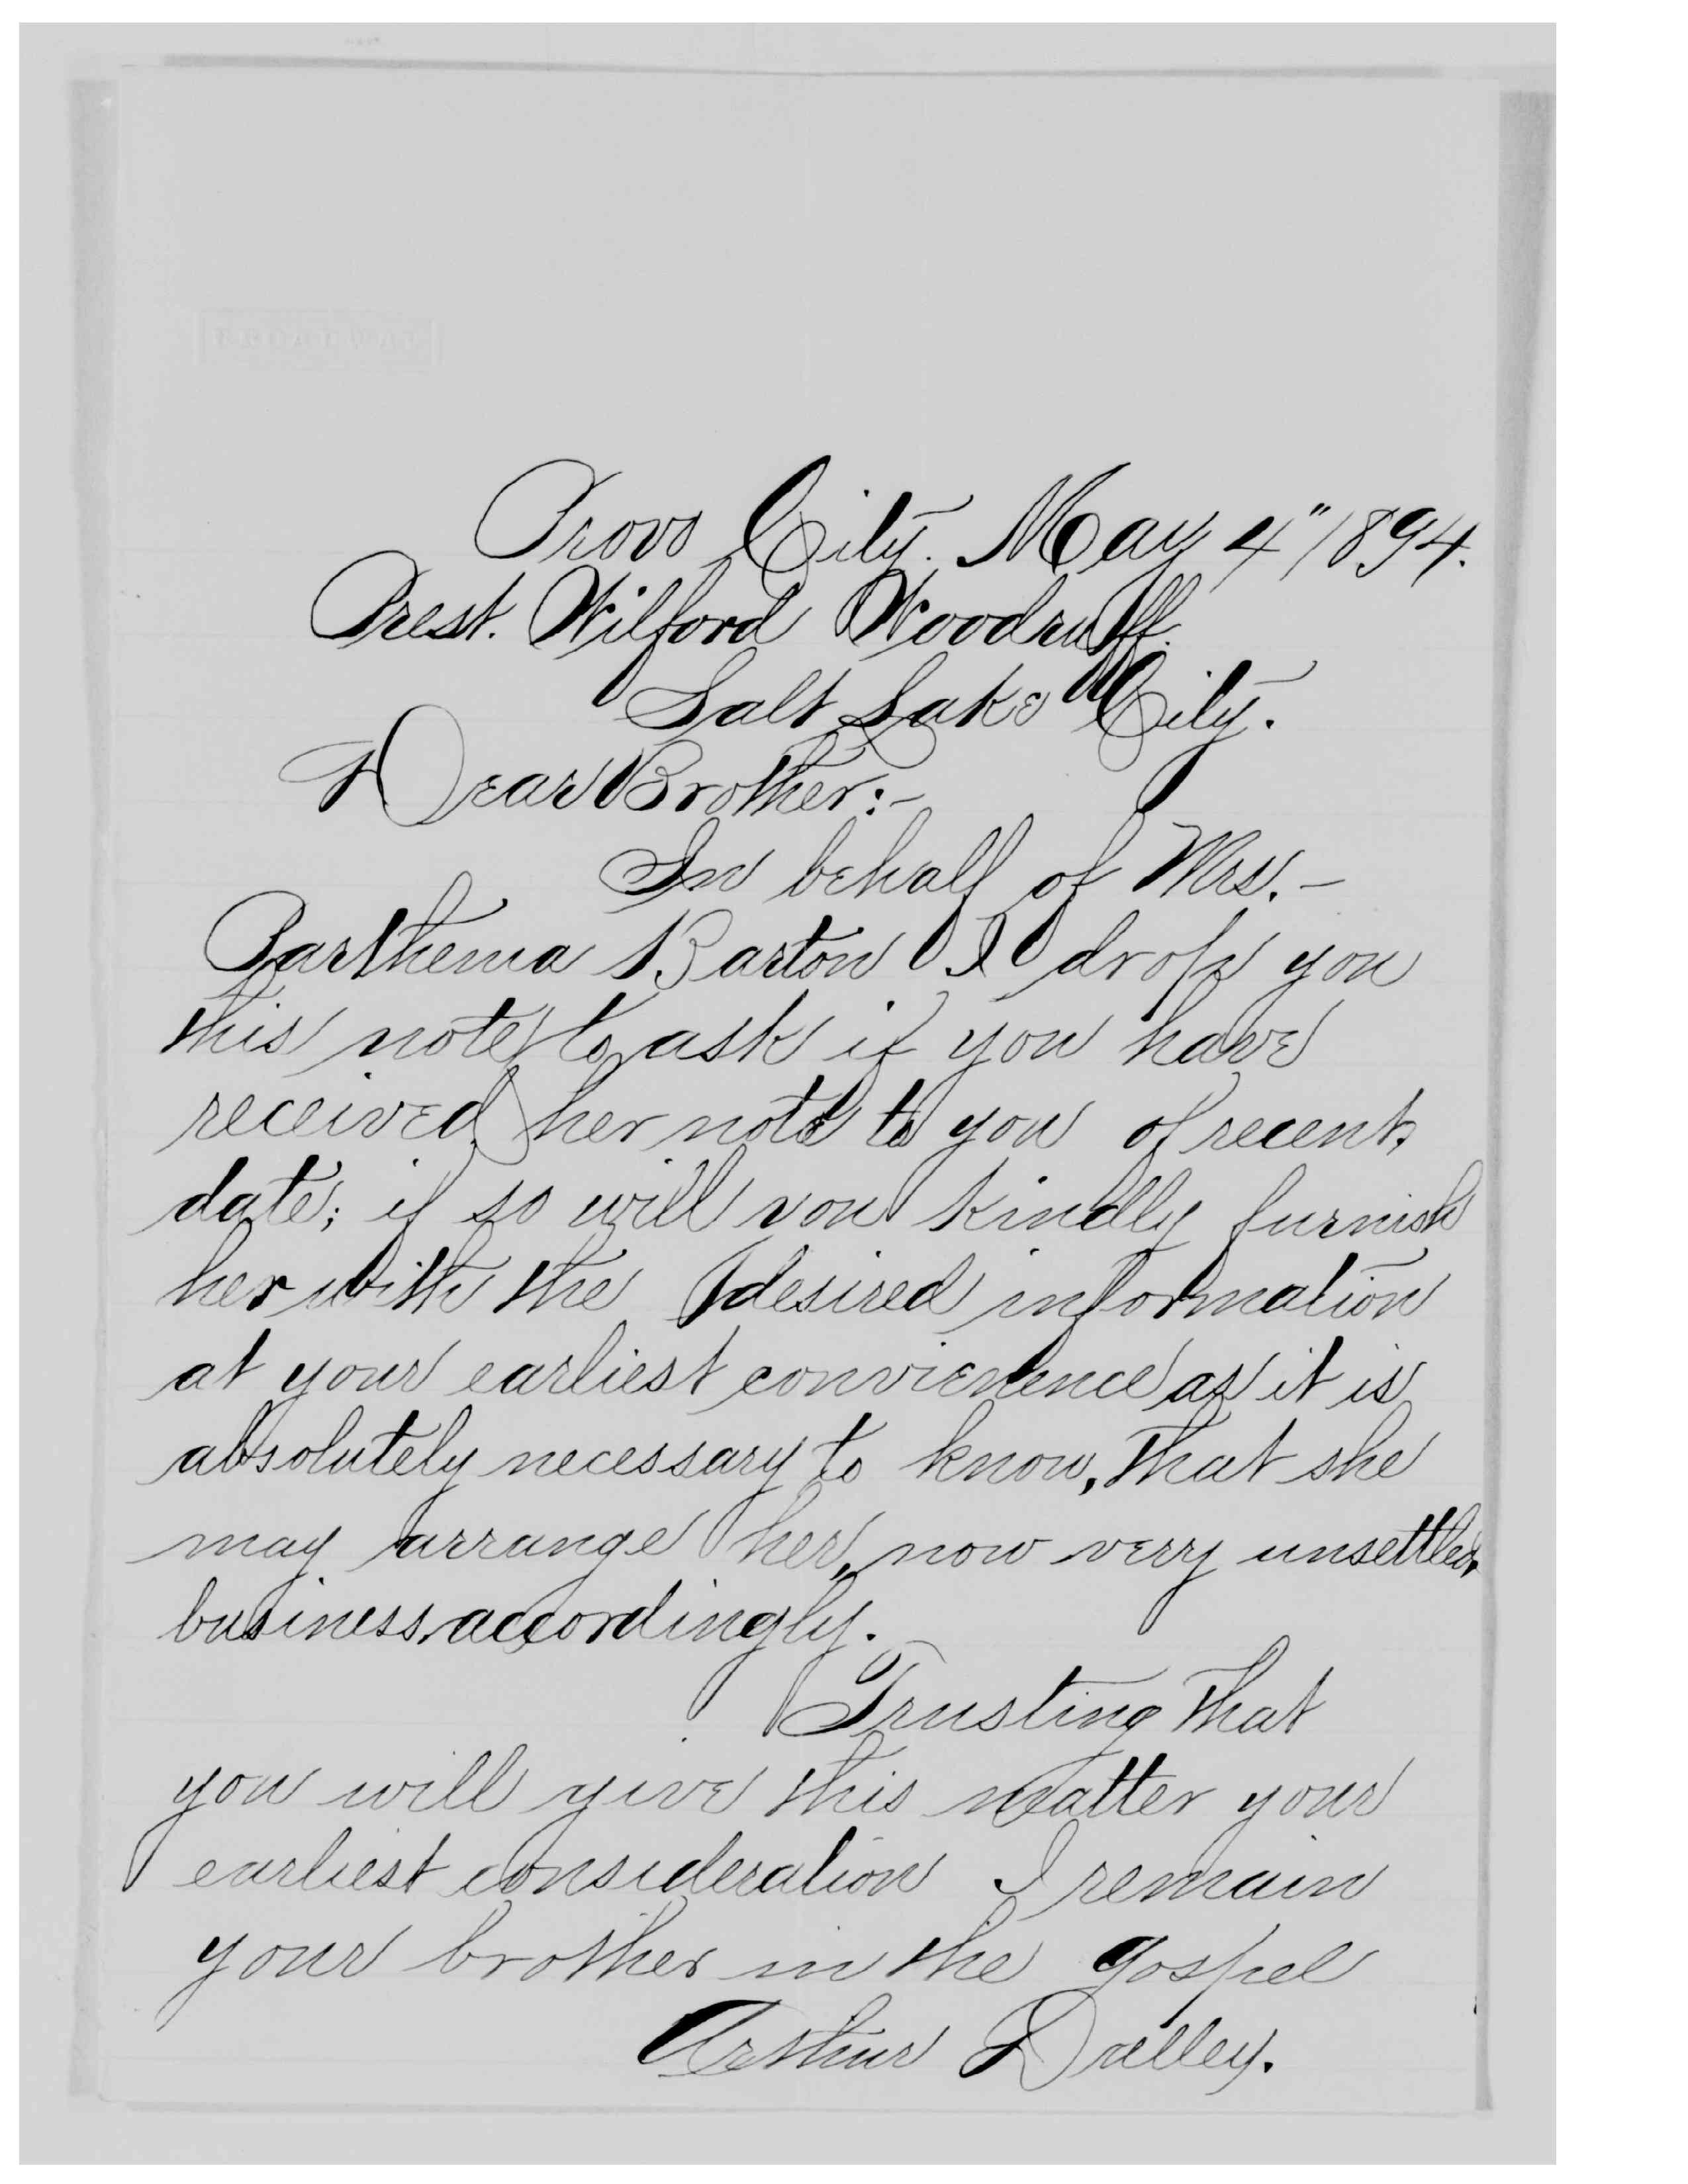 BROADWAY
Provo City. May 4" 1894.
Prest. Wilford Woodruff.
Salt Lake City.
Dear Brother:-
In behalf of Mrs. -
Parthema Barton I drop you
this note to ask if you have
received her note to you of recent
date; if so will you kindly furnish
her with the desired information
at your earliest convienence as it is
absolutely necessary to know, that she
may arrange her, now very unsettled,
business, accordingly.
Trusting that
you will give this matter your
earliest consideration I remain
your brother in the gospel
Arthur Dalley.